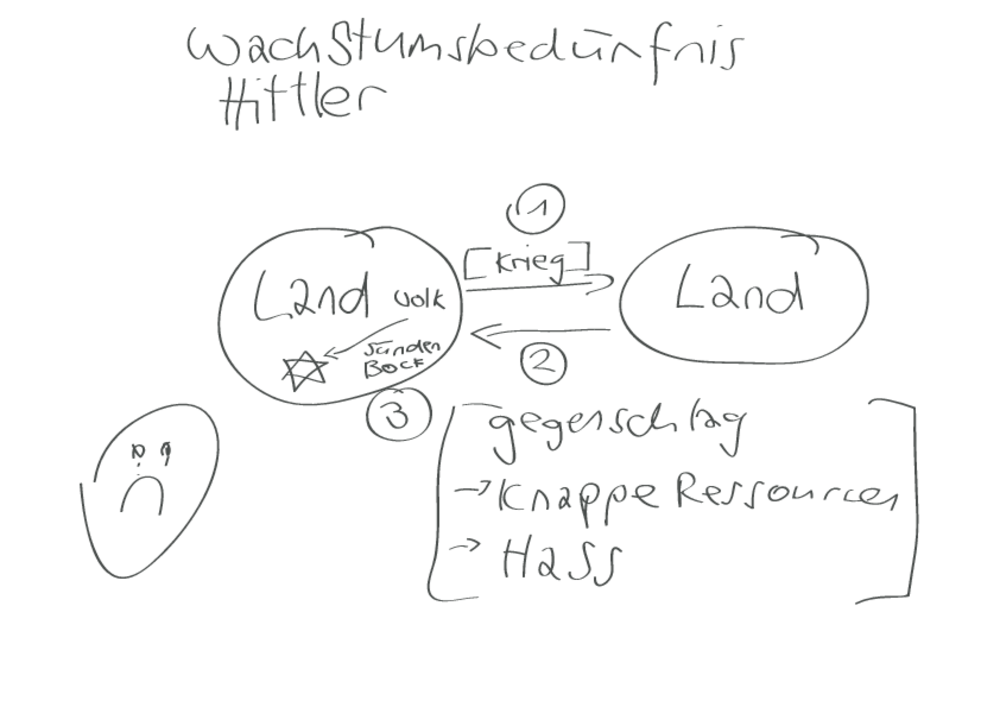 Wachstumsbedürfnis
Hittler
1
[Krieg]
Land Volk
Sünden
Bock
Land
2
3
gegenschlag
→ Knappe Ressourcen
→ Hass